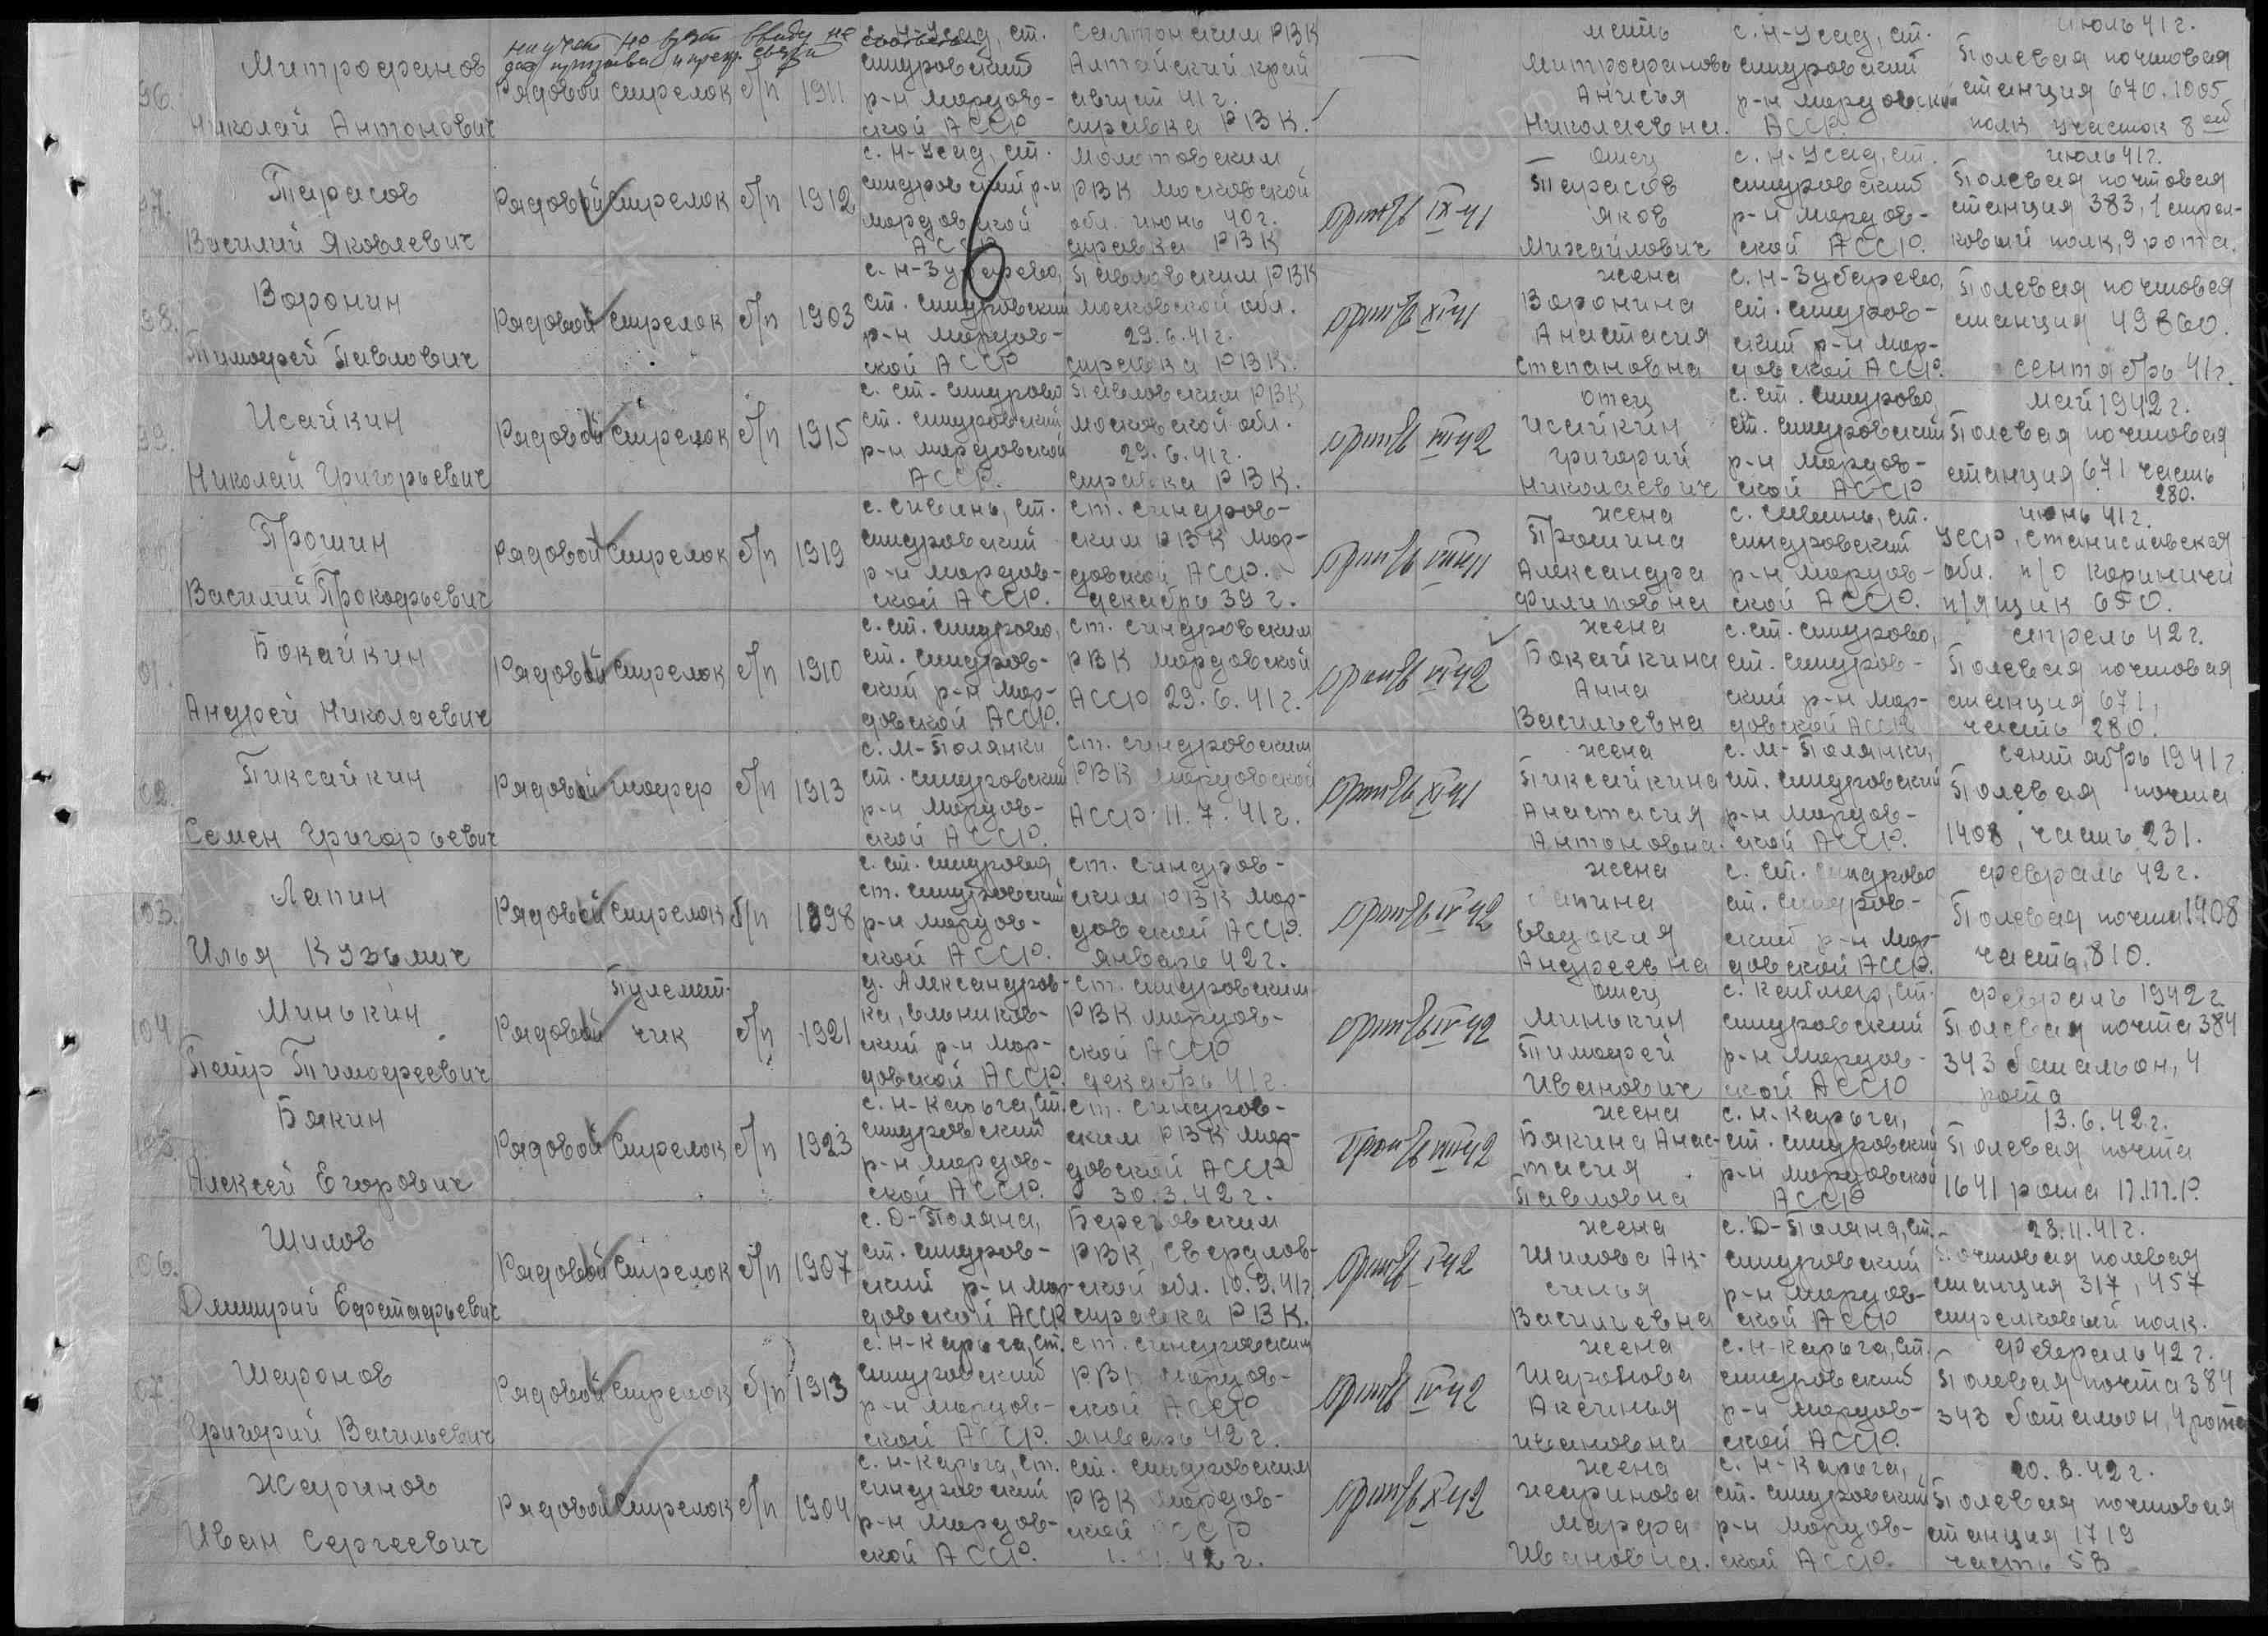 96.
Митрофанов
Николай Антонович
на учет не взят ввиду не
Рядовой стрелок б/п 1911
с. Н-Усад, ст.
синдровский
р-н Мордов-
ской АССР
Алтайский край
август 41 г.
справка РВК.
мать
Митрофанова
Анисья
Николаевна.
с. Н-Усад, ст.
синдровский
р-н Мордовской
АССР.
июль 41 г.
Полевая почтовая
станция 670. 1005
полк участок 8
97.
Тарасов
Василий Яковлевич
Рядовой стрелок б/п 1912
с. Н-Усад, ст.
синдровский р-н
Мордовской
АССР
Молотовским
РВК Московской
обл. июнь 40 г.
справка РВК
6
IX-41
отец
Тарасов
Яков
Михайлович
с. Н-Усад, ст.
синдровский
р-н Мордов-
ской АССР.
июль 41 г.
Полевая почтовая
станция 383, 1 стрел-
ковый полк, 9 рота.
98.
Воронин
Тимофей Павлович
Рядовой стрелок б/п 1903
с. Н-Зубарево,
ст. синдровский
р-н Мордов-
ской АССР
Павловским РВК
Московской обл.
29.6.41 г.
справка РВК.
XI-41
жена
Воронина
Анастасия
Степановна
с. Н-Зубарево,
ст. синдров-
ский р-н Мор-
довской АССР.
Полевая почтовая
станция 49860.
сентябрь 41 г.
99.
Исайкин
Николай Григорьевич
Рядовой стрелок б/п 1915
с. ст. синдрово
ст. синдровский
р-н Мордовской
АССР.
Павловским РВК
Московской обл.
29.6.41 г.
справка РВК.
отец
Исайкин
Григорий
Николаевич
с. ст. синдрово,
ст. синдровский
р-н Мордов-
ской АССР
май 1942 г.
Полевая почтовая
станция 671 часть
280.
Прошин
Василий Прокофьевич
Рядовой стрелок б/п 1919
с. Сивинь, ст.
синдровский
р-н Мордов-
ской АССР.
ст. синдров-
ским РВК Мор-
довской АССР.
декабрь 39 г.
жена
Прошина
Александра
Филиповна
с. Сивинь, ст.
синдровский
р-н Мордов-
ской АССР.
июнь 41 г.
УССР, Станиславская
обл. п/о
п/ящик 650.
01.
Бокайкин
Андрей Николаевич
Рядовой стрелок б/п 1910
с. ст. синдрово,
ст. синдров-
ский р-н Мор-
довской АССР.
ст. синдровским
РВК Мордовской
АССР 29.6.41 г.
жена
Бокайкина
Анна
Васильевна
с. ст. синдрово,
ст. синдров-
ский р-н Мор-
довской АССР
апрель 42 г.
Полевая почтовая
станция 671,
часть 280.
02.
Пиксайкин
Семен Григорьевич
Рядовой шофер б/п 1913
с. М-Полянки
ст. синдровский
р-н Мордов-
ской АССР.
ст. синдровским
РВК Мордовской
АССР. 11.7.41 г.
XI-41
жена
Пиксайкина
Анастасия
Антоновна.
с. М-Полянки,
ст. синдровский
р-н Мордов-
ской АССР.
сентябрь 1941 г.
Полевая почта
1408, часть 231.
03.
Лапин
Илья Кузьмич
Рядовой стрелок б/п 1898
с. ст. синдрово
ст. синдровский
р-н Мордов-
ской АССР.
ст. синдров-
ским РВК Мор-
довской АССР.
январь 42 г.
IV-42
жена
Лапина
Евдокия
Андреевна
с. ст. синдрово
ст. синдров-
ский р-н Мор-
довской АССР.
февраль 42 г.
Полевая почта 1908
часть 810.
104
Минькин
Петр Тимофеевич
Рядовой
Пулемет-
чик
б/п 1921
д. Александров-
ка, ельников-
ский р-н Мор-
довской АССР.
ст. синдровским
РВК Мордов-
ской АССР
декабрь 41 г.
IV-42
отец
Минькин
Тимофей
Иванович
ст.
синдровский
р-н Мордов-
ской АССР
февраль 1942 г
Полевая почта 384
343 батальон, 4
рота
105.
Бякин
Алексей Егорович
Рядовой стрелок б/п 1923
с. Н-Карьга, ст.
синдровский
р-н Мордов-
ской АССР.
ст. синдров-
ским РВК Мор-
довской АССР
30.3.42 г.
жена
Бякина Анас-
тасия
Павловна
с. Н-Карьга,
ст. синдровский
р-н Мордовской
АССР
13.6.42 г.
Полевая почта
1641 рота П.Т.Р.
06.
Шилов
Дмитрий Ефстафьевич
Рядовой стрелок б/п 1907
с. Д-Поляна,
ст. синдров-
ский р-н Мор-
довской АССР
РВК, Свердлов-
ской обл. 10.9.41 г
справка РВК.
жена
Шилова Ак-
синья
Васильевна
с. Д-Поляна, ст.
синдровский
р-н Мордов-
ской АССР
28.11.41 г.
Почтовая полевая
станция 317, 457
стрелковый полк.
07.
Шаронов
Григорий Васильевич
Рядовой стрелок б/п 1913
с. Н-Карьга, ст.
синдровский
р-н Мордов-
ской АССР.
ст. синдровским
РВК Мордов-
ской АССР
январь 42 г.
IV-42
жена
Шаронова
Аксинья
Ивановна
с. Н-Карьга, ст.
синдровский
р-н Мордов-
ской АССР.
февраль 42 г.
Полевая почта 384
343 батальон, 4 рота
Жаринов
Иван Сергеевич
Рядовой стрелок б/п 1904
с. Н-Карьга, ст.
синдровский
р-н Мордов-
ской АССР.
ст. синдровским
РВК Мордов-
ской АССР
42 г.
X-42
жена
Жаринова
Марфа
Ивановна.
с. Н-Карьга,
ст. синдровский
р-н Мордов-
ской АССР.
20.8.42 г.
Полевая почтовая
станция 1719
часть 58